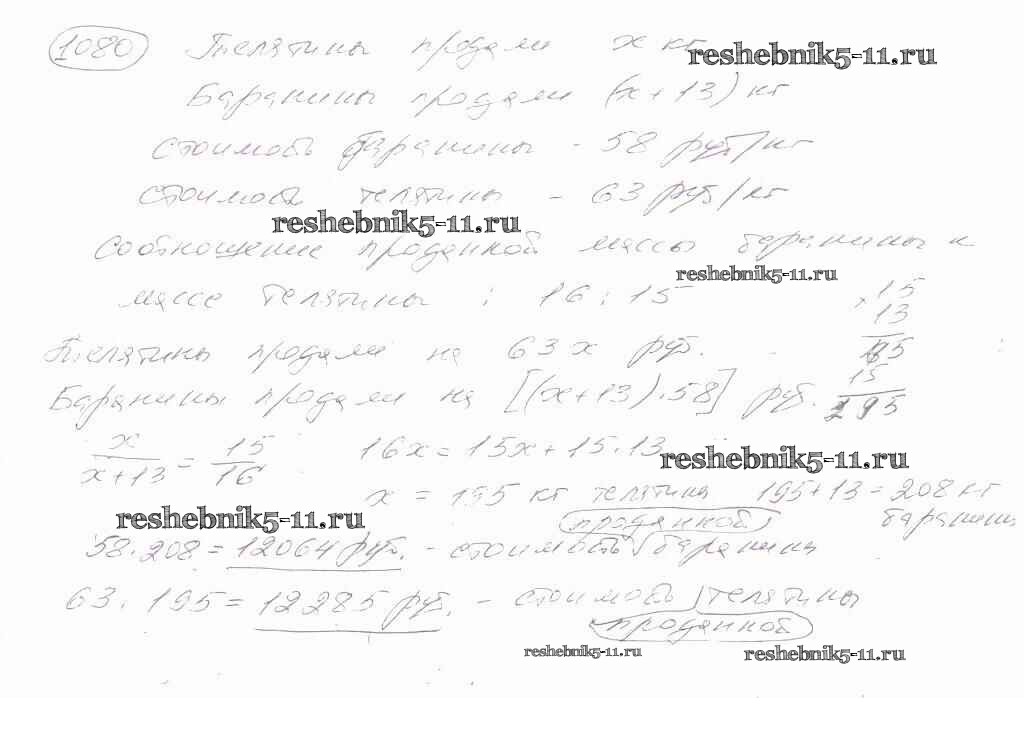 1080 Телятины продали x кг
reshebnik5-11.ru
Баранины продали (x+13) кг
стоимость баранины - 58 руб/кг
стоимость телятины - 63 руб/кг
reshebnik5-11.ru
Соотношение проданной массы баранины к
reshebnik5-11.ru
массе телятины : 16 : 15
Телятины продали на 63x руб.
Баранины продали на [(x+13)·58] руб.
× 15
13
45
15
195
x/(x+13) = 15/16
16x = 15x + 15·13
reshebnik5-11.ru
x = 195 кг телятина 195+13 = 208 кг баранины
reshebnik5-11.ru
проданной
58·208 = 12064 руб. - стоимость баранины
63·195 = 12285 руб. - стоимость телятины
проданной
reshebnik5-11.ru
reshebnik5-11.ru